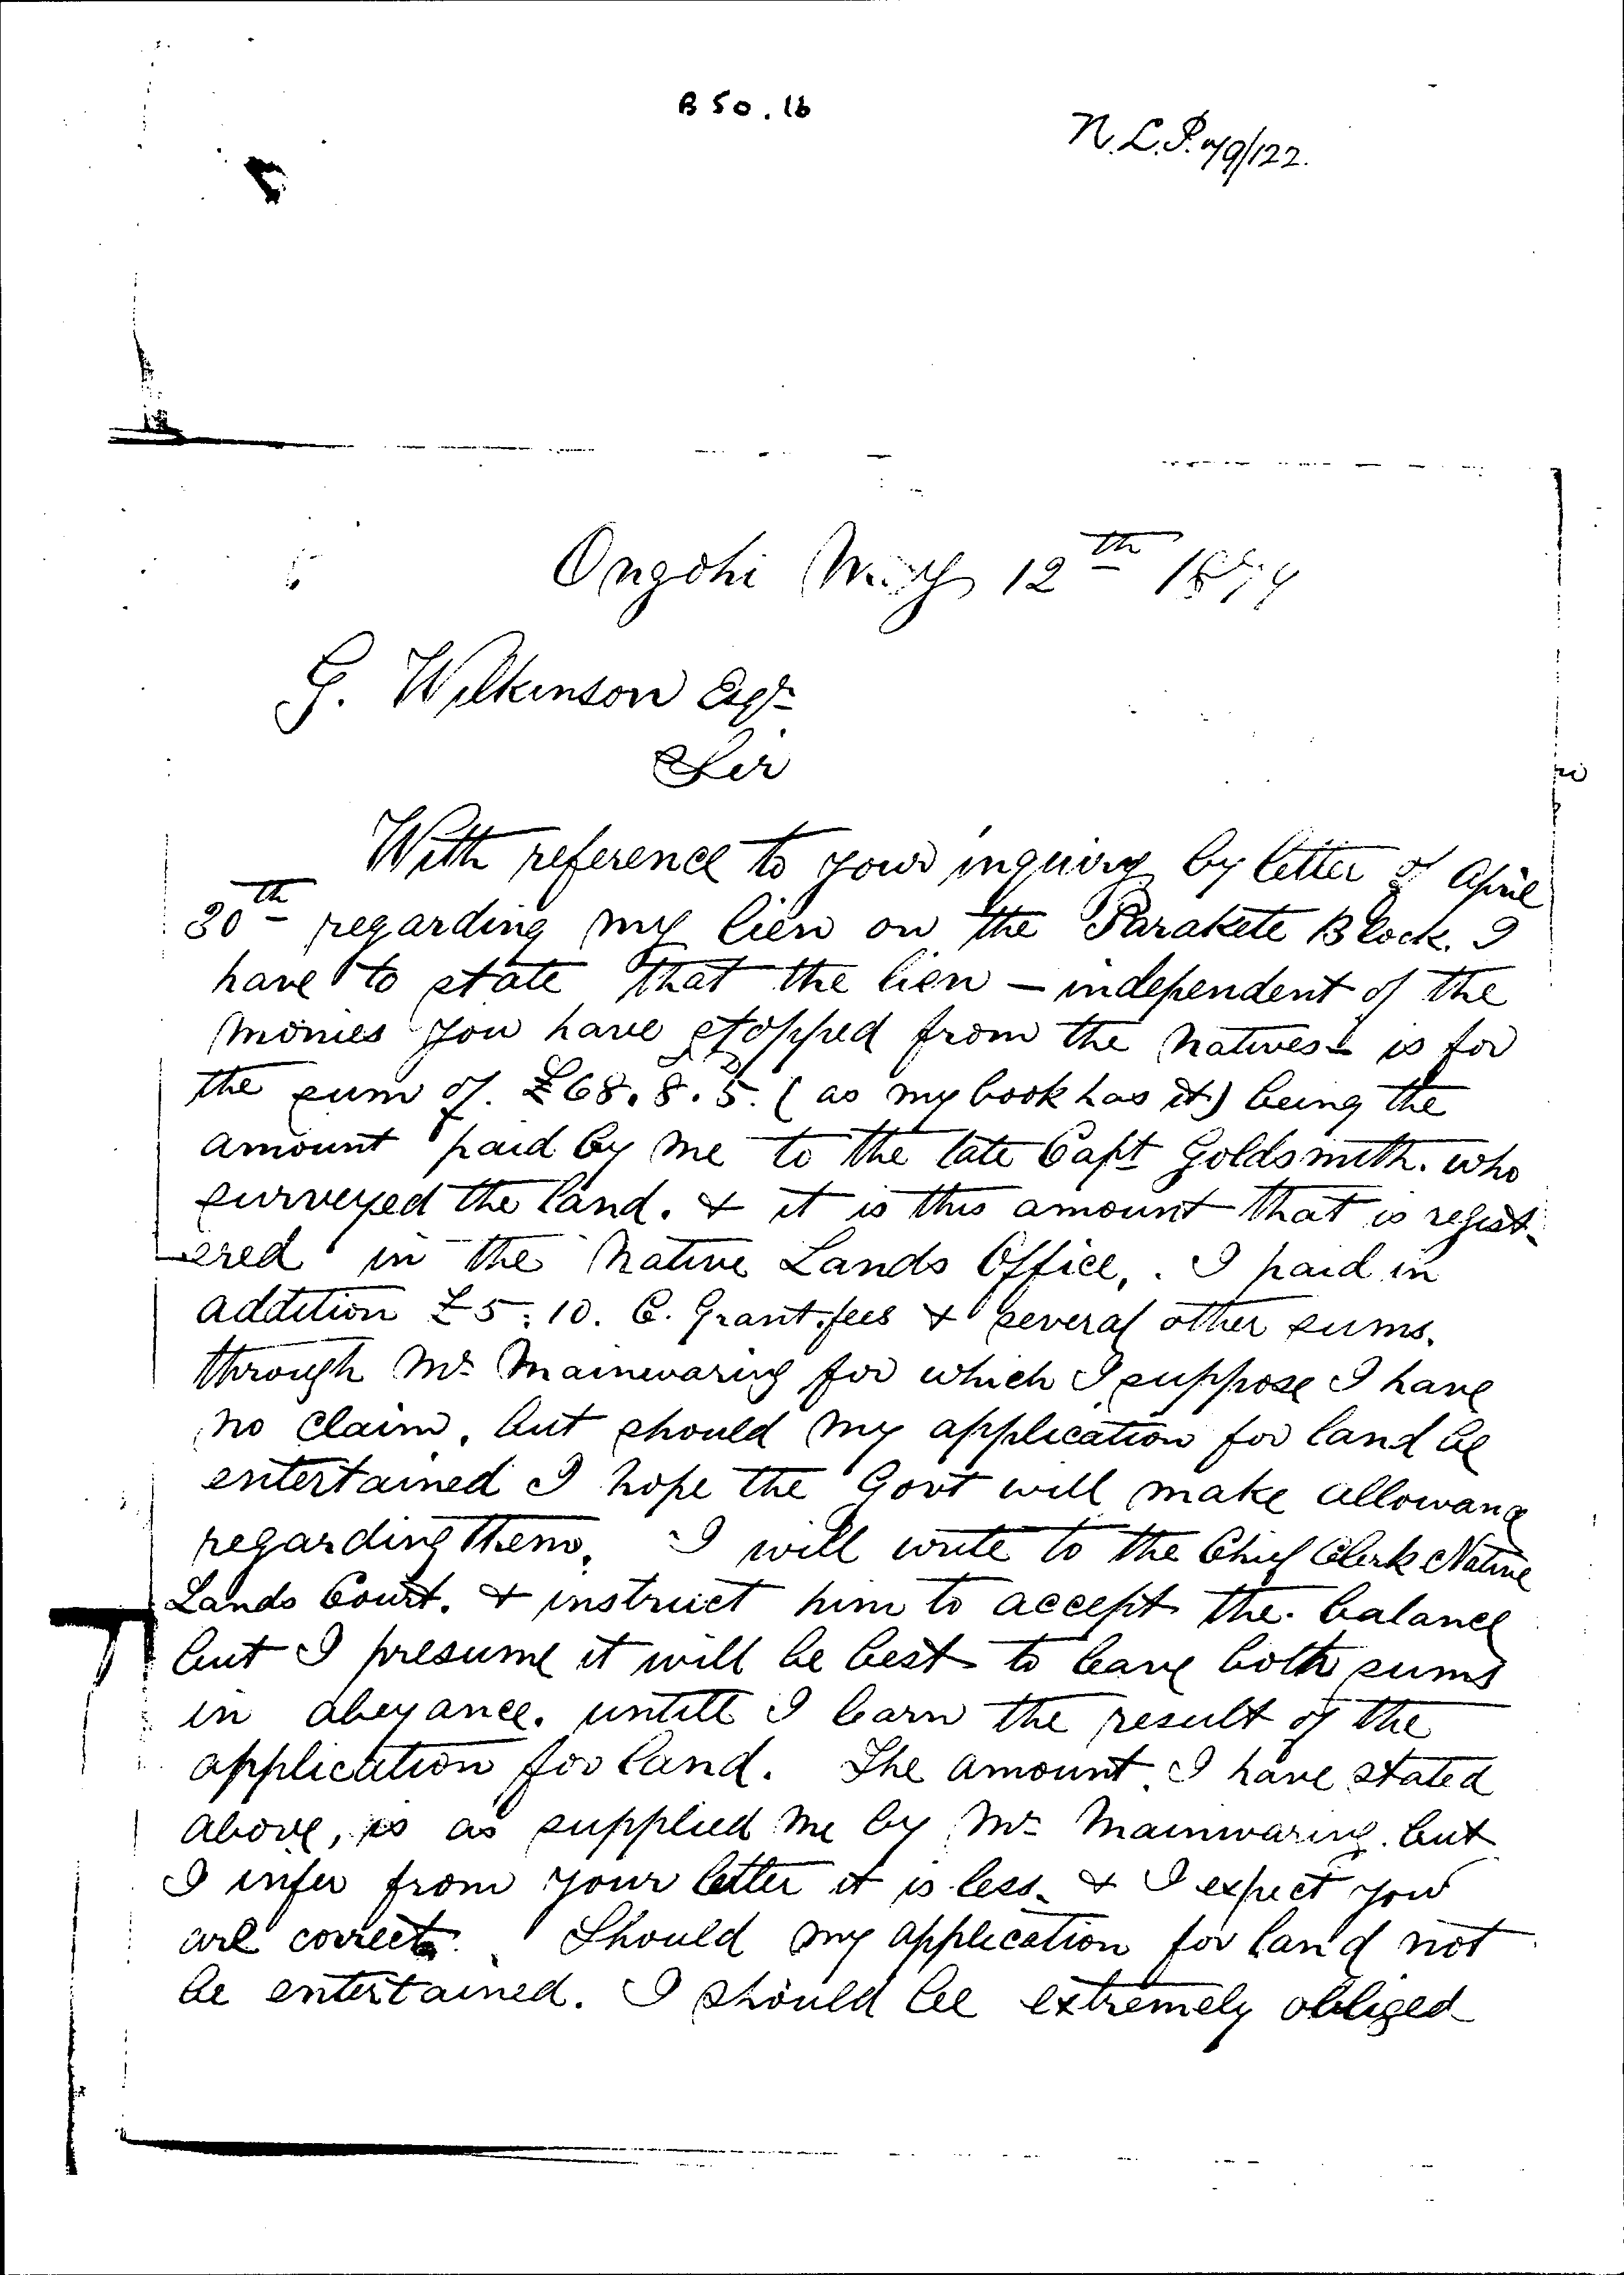 B 50.16
N.L.P. 79/122.
Ongohi May 12th 1879
G. Wilkinson Esqr
Sir
With reference to your inquiry by letter of April
30th regarding my lien on the Parakete Block. I
have to state that the lien – independent of the
monies you have stopped from the natives – is for
the sum of. £68.8.5. (as my book has it) being the
amount paid by me to the late Capt Goldsmith. who
surveyed the land. & it is this amount that is regist-
ered in the Native Lands Office,. I paid in
addition £5:10. C. Grant.fees & several other sums.
through Mr Mainwaring for which I suppose I have
no claim, but should my application for land be
entertained I hope the Govt will make allowance
regarding them. I will write to the Chief Clerk Native
Lands Court. & instruct him to accept the balance
but I presume it will be best to leave both sums
in abeyance. untill I learn the result of the
application for land. The amount I have stated
above, is as supplied me by Mr Mainwaring. but
I infer from your letter it is less. & I expect you
are correct. Should my application for land not
be entertained. I should be extremely obliged